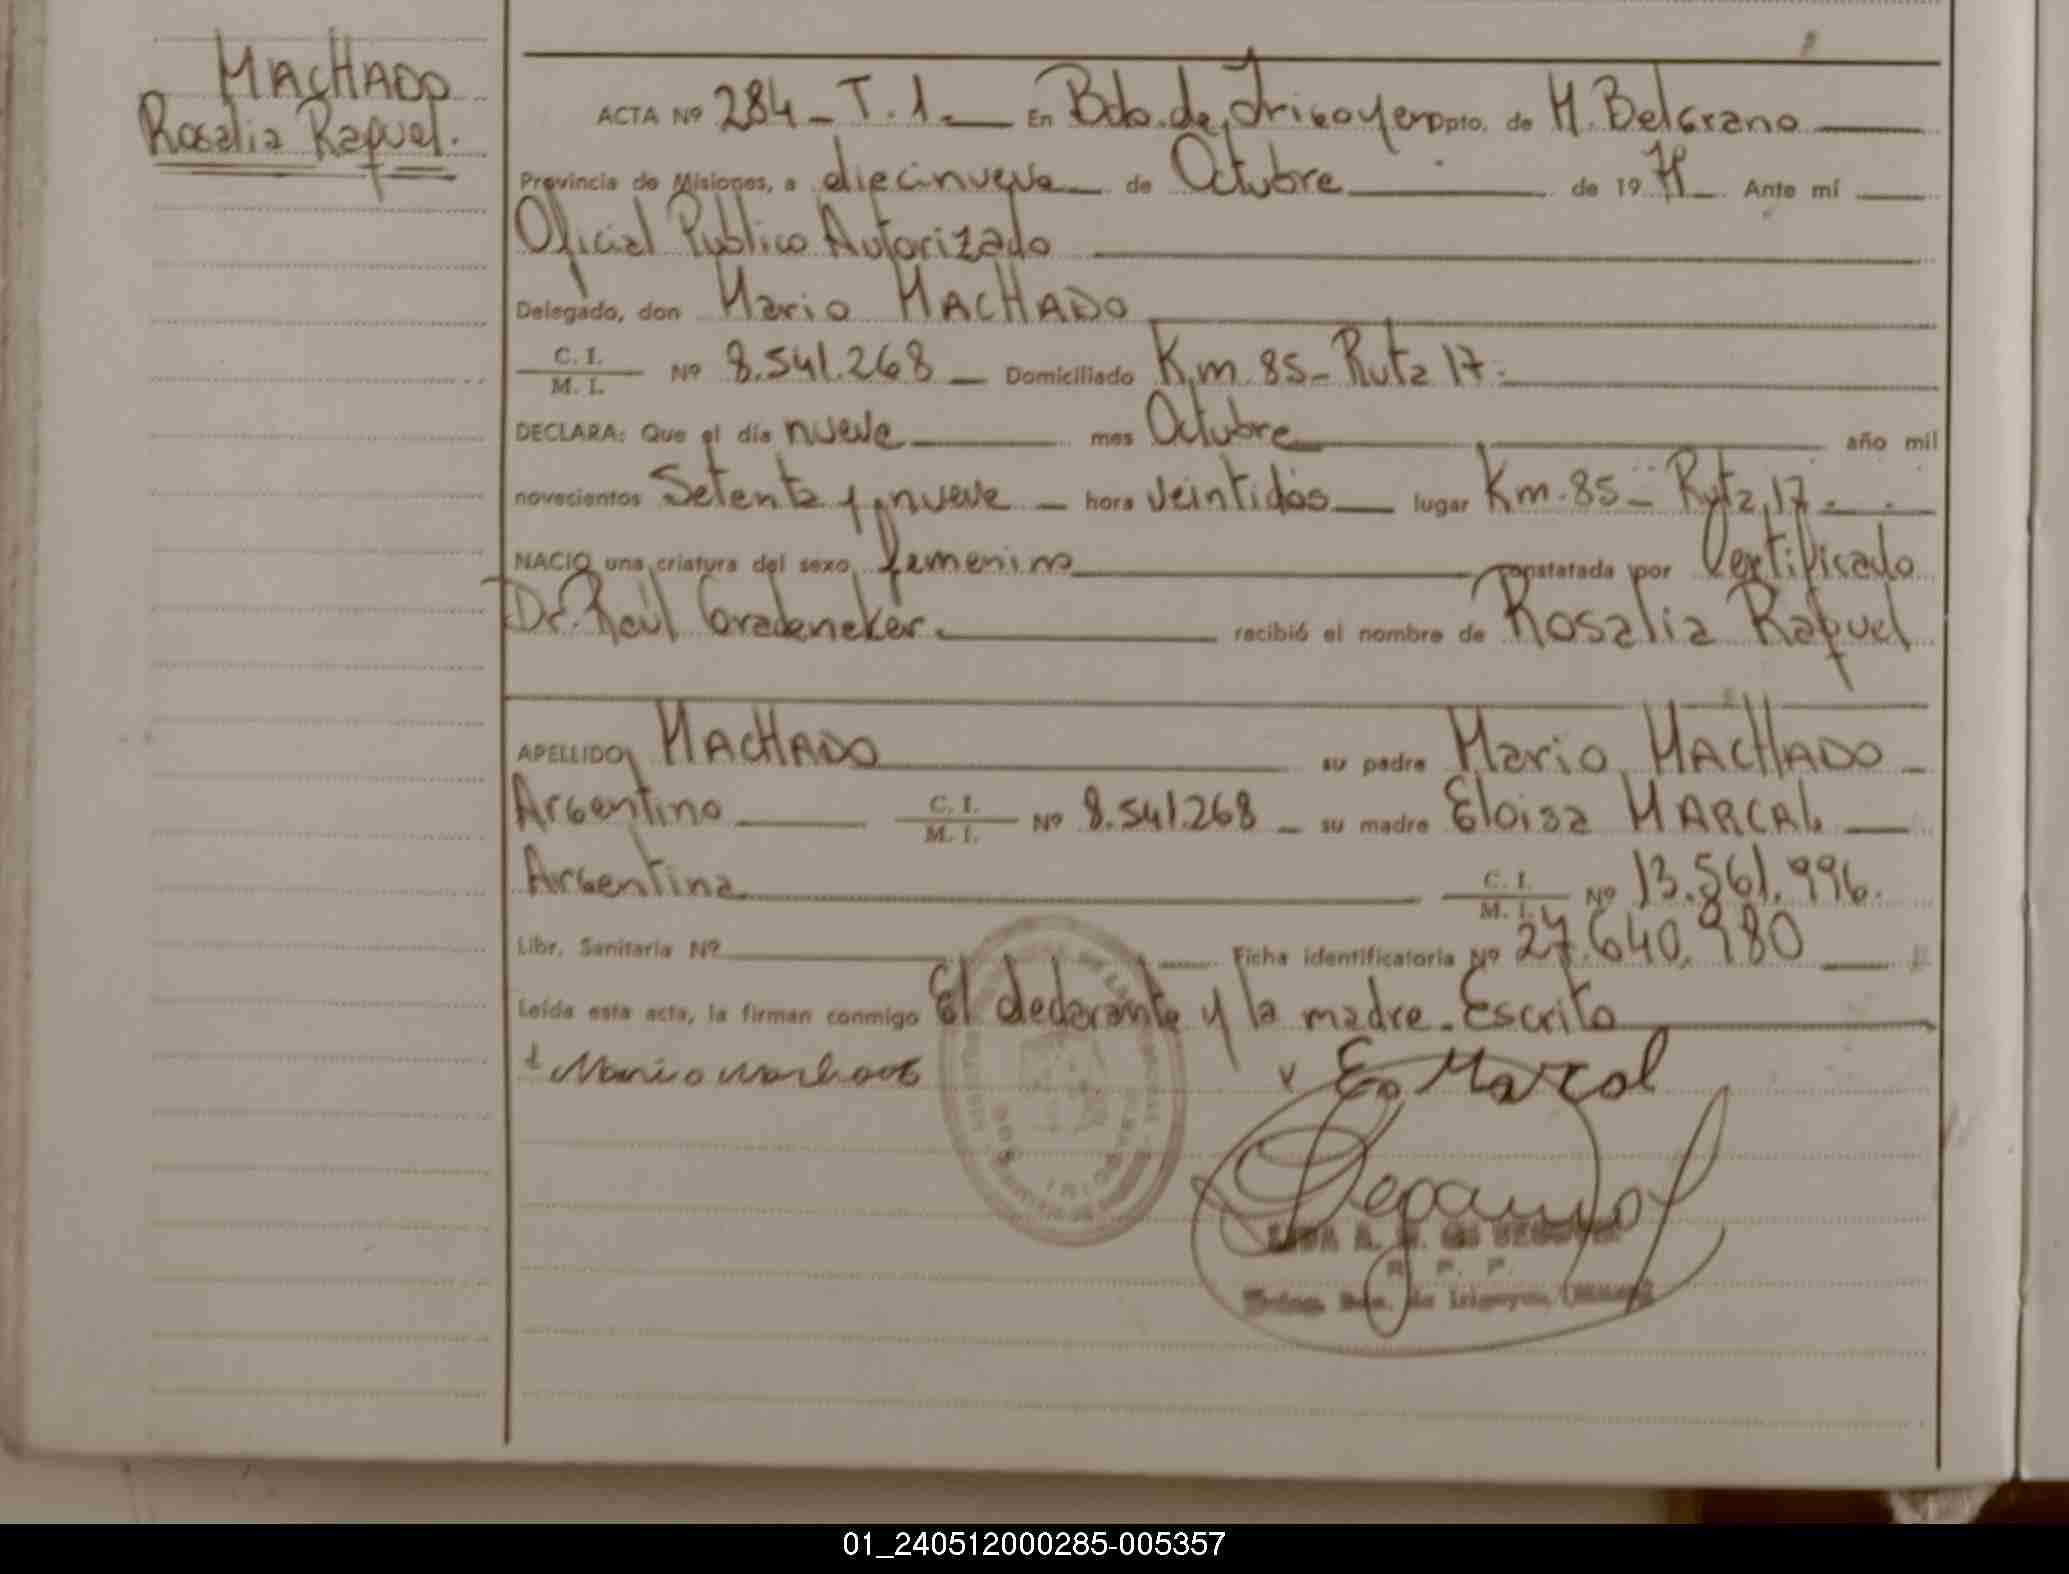 MACHADO
Rosalia Raquel.
ACTA Nº 284 - T. 1. En Bdo. de Irigoyen Dpto. de M. Belgrano
Provincia de Misiones, a diecinueve de Octubre de 19 79 Ante mí
Oficial Publico Autorizado
Delegado, don Mario MACHADO
C. I. / M. I. Nº 8.541.268 - Domiciliado Km 85 - Ruta 17.
DECLARA: Que el día nueve mes Octubre año mil
novecientos Setenta y nueve - hora veintidos lugar Km. 85 - Ruta 17 -
NACIO una criatura del sexo femenino constatada por Certificado
Dr. Raúl recibió el nombre de Rosalia Raquel
APELLIDO MACHADO su padre Mario MACHADO
Argentino C. I. / M. I. Nº 8.541.268 - su madre Eloisa MARCAL
Argentina C. I. / M. I. Nº 13.561.996.
Libr. Sanitaria Nº Ficha identificatoria Nº 27.640.980
Leída esta acta, la firman conmigo El declarante y la madre. Escrito
Mario Machado E. Marcal
R. P. P.
01_240512000285-005357